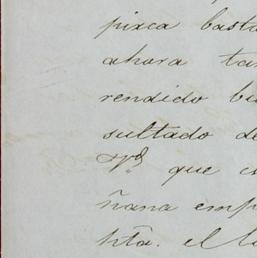 pixca basta
ahora tan
rendido bu
sultado de
Vd que es
ñana emp
hta. el l